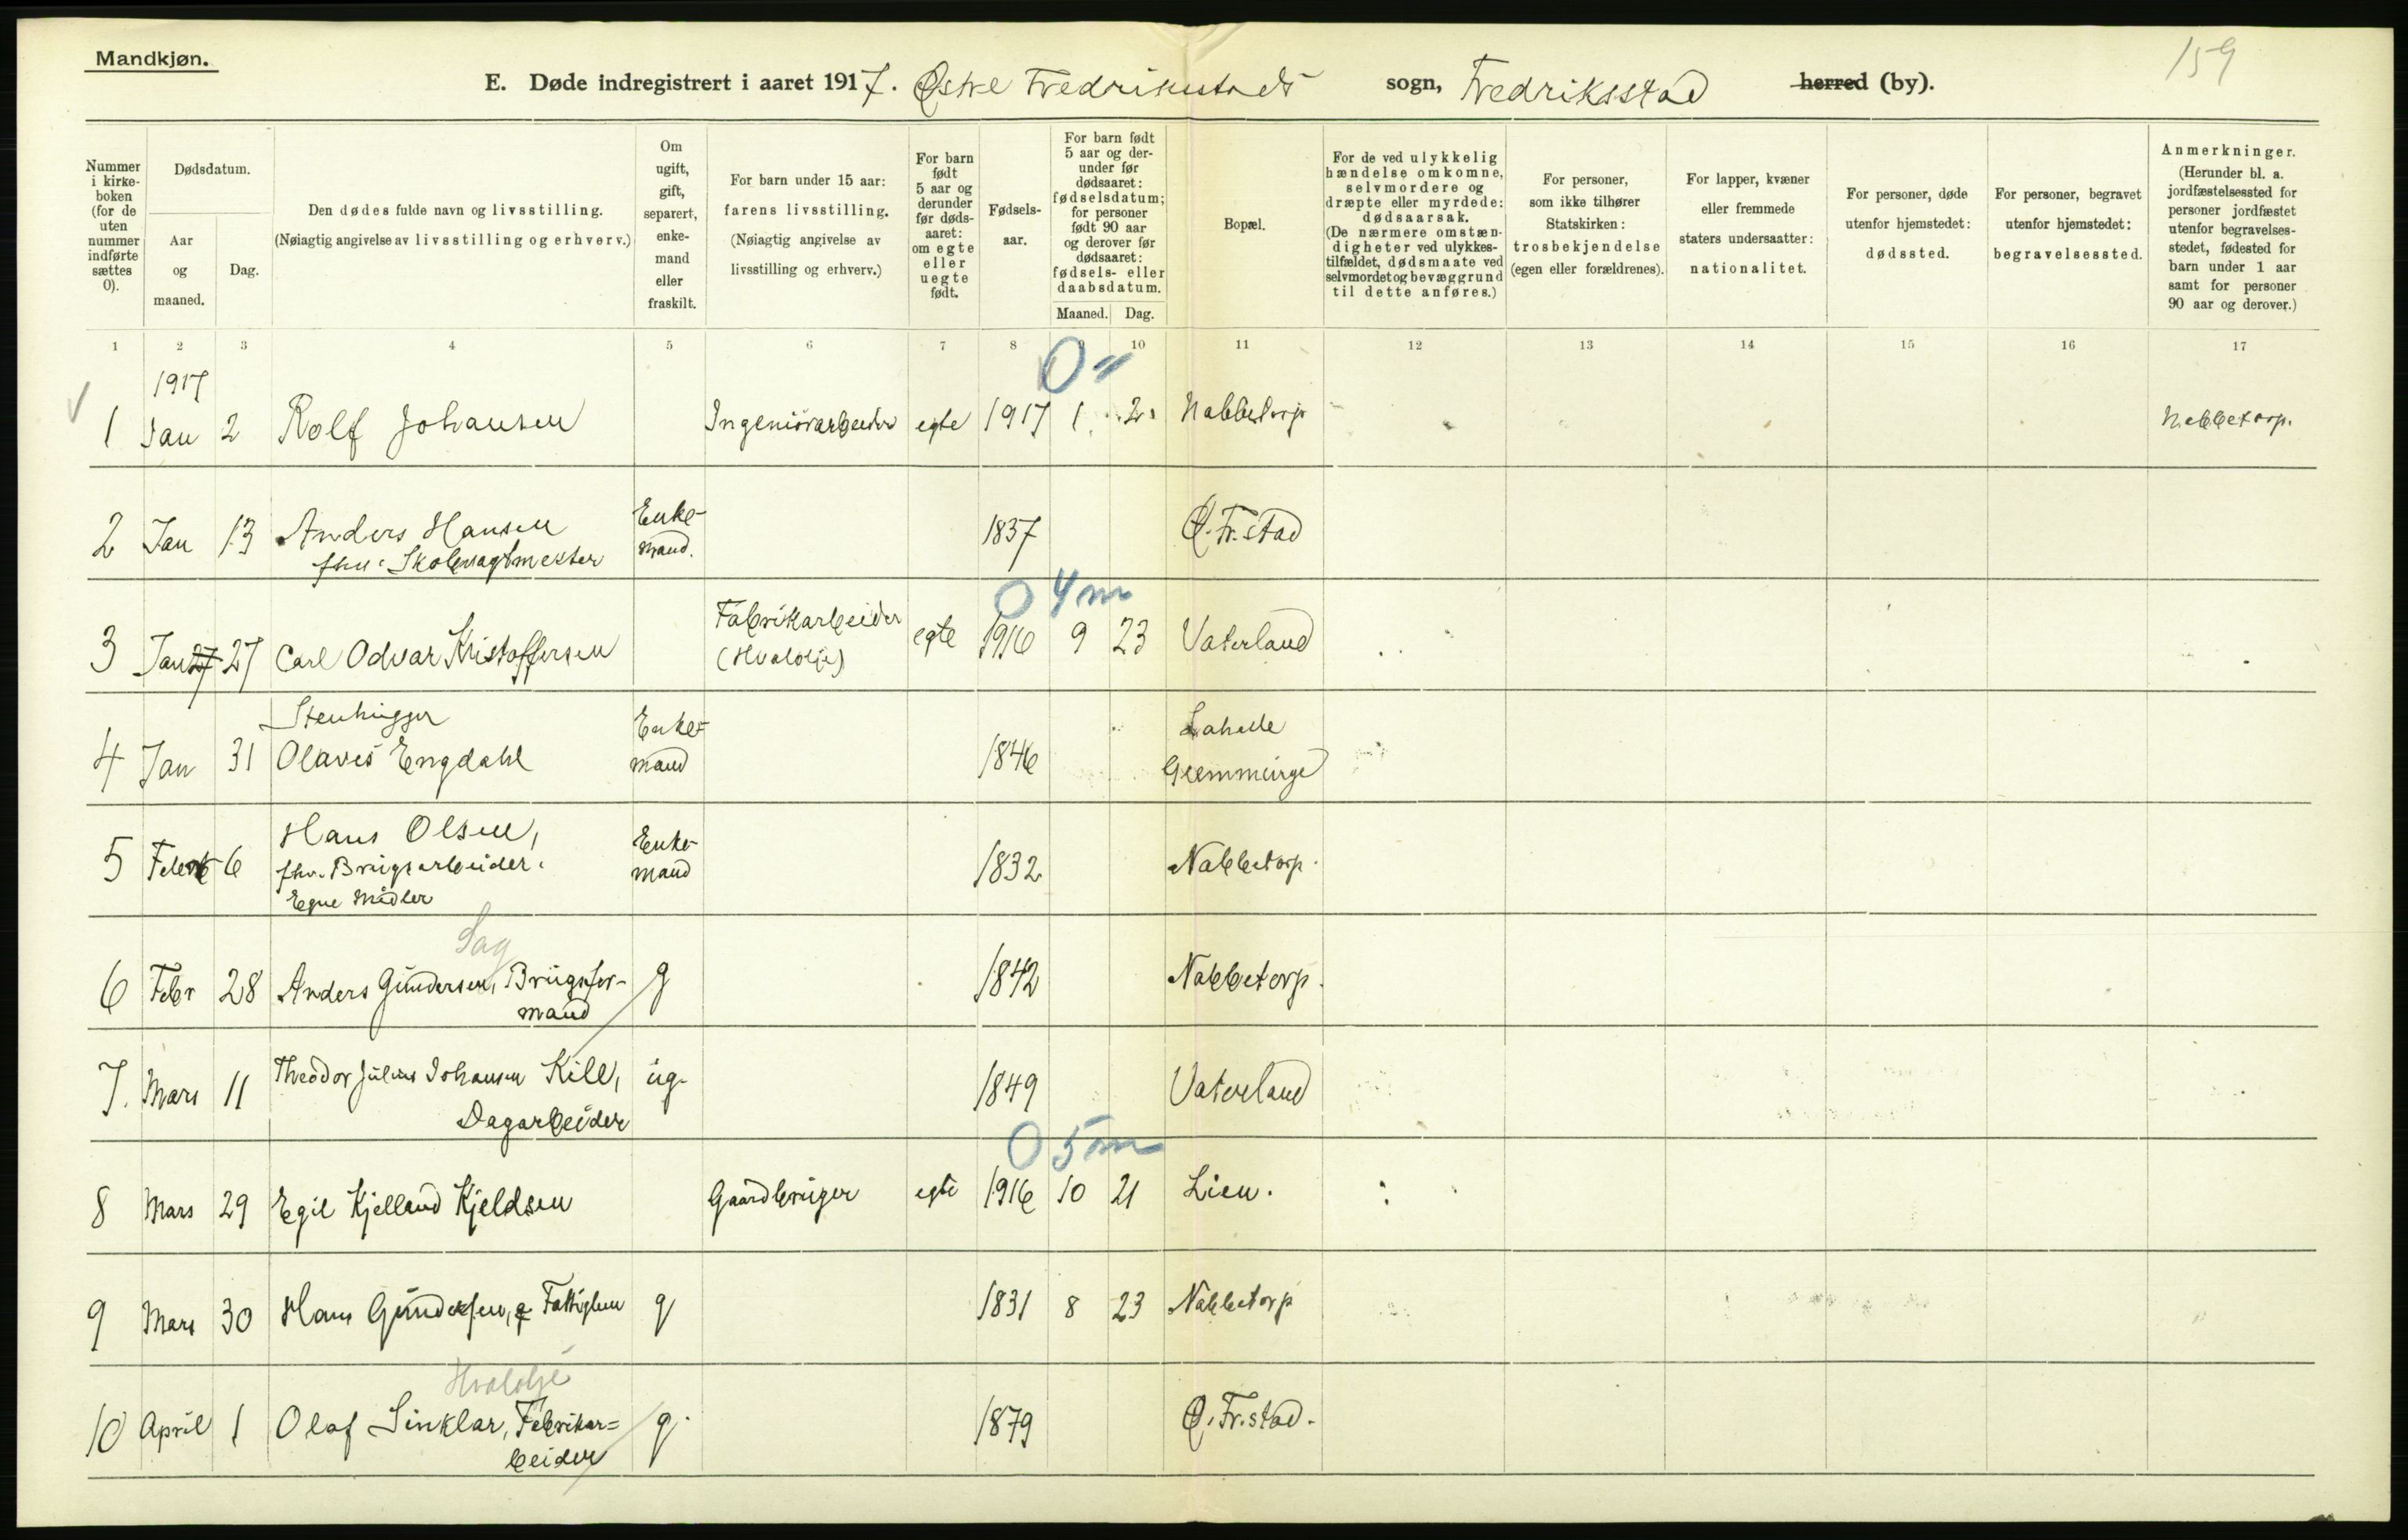 Mandkjøn.
159
E. Døde indregistrert i aaret 1917. Østre Fredrikstads sogn, Fredriksstad herred (by).
Nummer i kirkeboken (for de uten nummer indførte sættes 0).
Dødsdatum.
Aar og maaned.
Dag.
Den dødes fulde navn og livsstilling. (Nøiagtig angivelse av livsstilling og erhverv.)
Om ugift, gift, separert, enkemand eller fraskilt.
For barn under 15 aar: farens livsstilling. (Nøiagtig angivelse av livsstilling og erhverv.)
For barn født 5 aar og derunder før dødsaaret: om egte eller uegte født.
Fødselsaar.
For barn født 5 aar og derunder før dødsaaret: fødselsdatum; for personer født 90 aar og derover før dødsaaret: fødsels- eller daabsdatum.
Maaned. Dag.
Bopæl.
For de ved ulykkelig hændelse omkomne, selvmordere og dræpte eller myrdede: dødsaarsak. (De nærmere omstændigheter ved ulykkestilfældet, dødsmaate ved selvmordet og bevæggrund til dette anføres.)
For personer, som ikke tilhører Statskirken: trosbekjendelse (egen eller forældrenes).
For lapper, kvæner eller fremmede staters undersaatter: nationalitet.
For personer, døde utenfor hjemstedet: dødssted.
For personer, begravet utenfor hjemstedet: begravelsessted.
Anmerkninger. (Herunder bl. a. jordfæstelsessted for personer jordfæstet utenfor begravelsesstedet, fødested for barn under 1 aar samt for personer 90 aar og derover.)
1 2 3 4 5 6 7 8 9 10 11 12 13 14 15 16 17
1917 0
1 Jan 2 Rolf Johansen Ingeniørarbeider egte 1917 1 2 Nabbetorp Nabbetorp.
2 Jan 13 Anders Hansen Enke- 1837 Ø. Fr.stad
fhv. Skolevagtmester mand.
0 4 m
3 Jan 27 27 Carl Odvar Kristoffersen Fabrikarbeider egte 1916 9 23 Vaterland
(Hvalolje)
Stenhugger Enke-
4 Jan 31 Olaves Engdahl mand 1846 Lahelle
Glemminge
5 Febr 6 Hans Olsen, Enke- 1832 Nabbetorp.
fhv. Brugsarbeider. mand
Egne Midler
Sag
6 Febr 28 Anders Gundersen, Brugsfor- g 1842 Nabbetorp.
mand
7. Mars 11 Theodor Julius Johansen Kill, ug. 1849 Vaterland
Dagarbeider
0 5 m
8 Mars 29 Egil Kjelland Kjeldsen Gaardbruger egte 1916 10 21 Lien.
9 Mars 30 Hans Gundersen, Fattiglem g 1831 8 23 Nabbetorp
Hvalolje
10 April 1 Olaf Sinklar, Fabrikar= g. 1879 Ø. Fr.stad.
beider